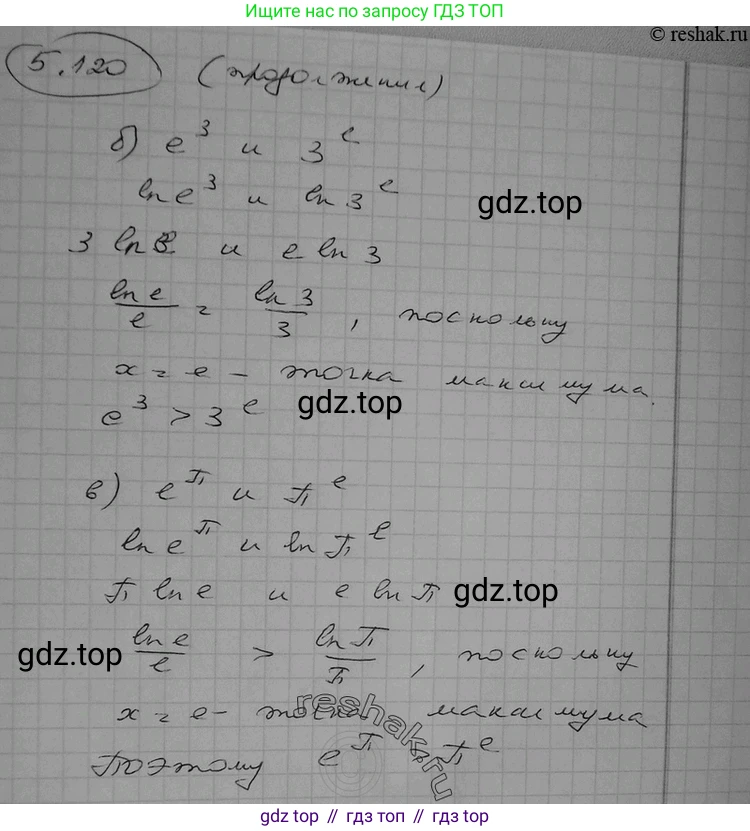 Ищите нас по запросу ГДЗ ТОП
© reshak.ru
5.120 (продолжение)
б) e³ и 3ᵉ
ln e³ и ln 3ᵉ
gdz.top
3 ln e и e ln 3
ln e / e = ln 3 / 3, поскольку
x = e - точка максимума.
e³ > 3ᵉ
gdz.top
в) e^π и π^e
ln e^π и ln π^e
π ln e и e ln π
gdz.top
ln e / e > ln π / π, поскольку
gdz.top
x = e - точка максимума
reshak.ru
Поэтому e^π > π^e
gdz.top // гдз топ // gdz top